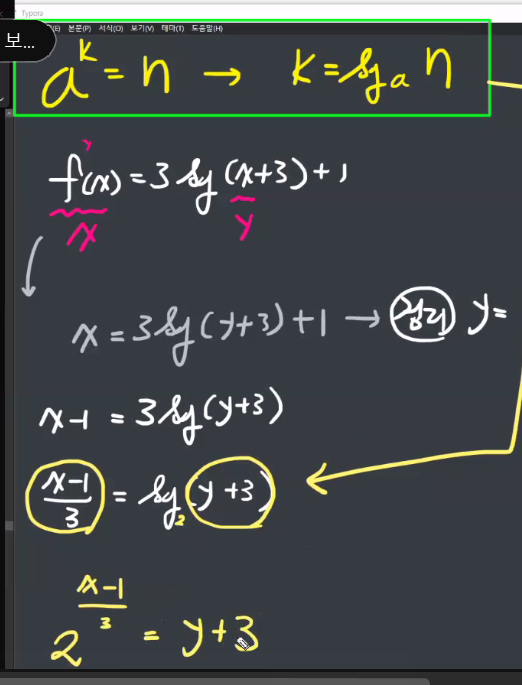 Typora
보...
(E) 본문(P) 서식(O) 보기(V) 테마(T) 도움말(H)
a^k = n → k = log_a n
f(x) = 3 log (x+3) + 1
y
x y
x = 3 log (y+3) + 1 → 정리 y =
x-1 = 3 log (y+3)
(x-1)/3 = log_2 (y+3)
2^((x-1)/3) = y+3